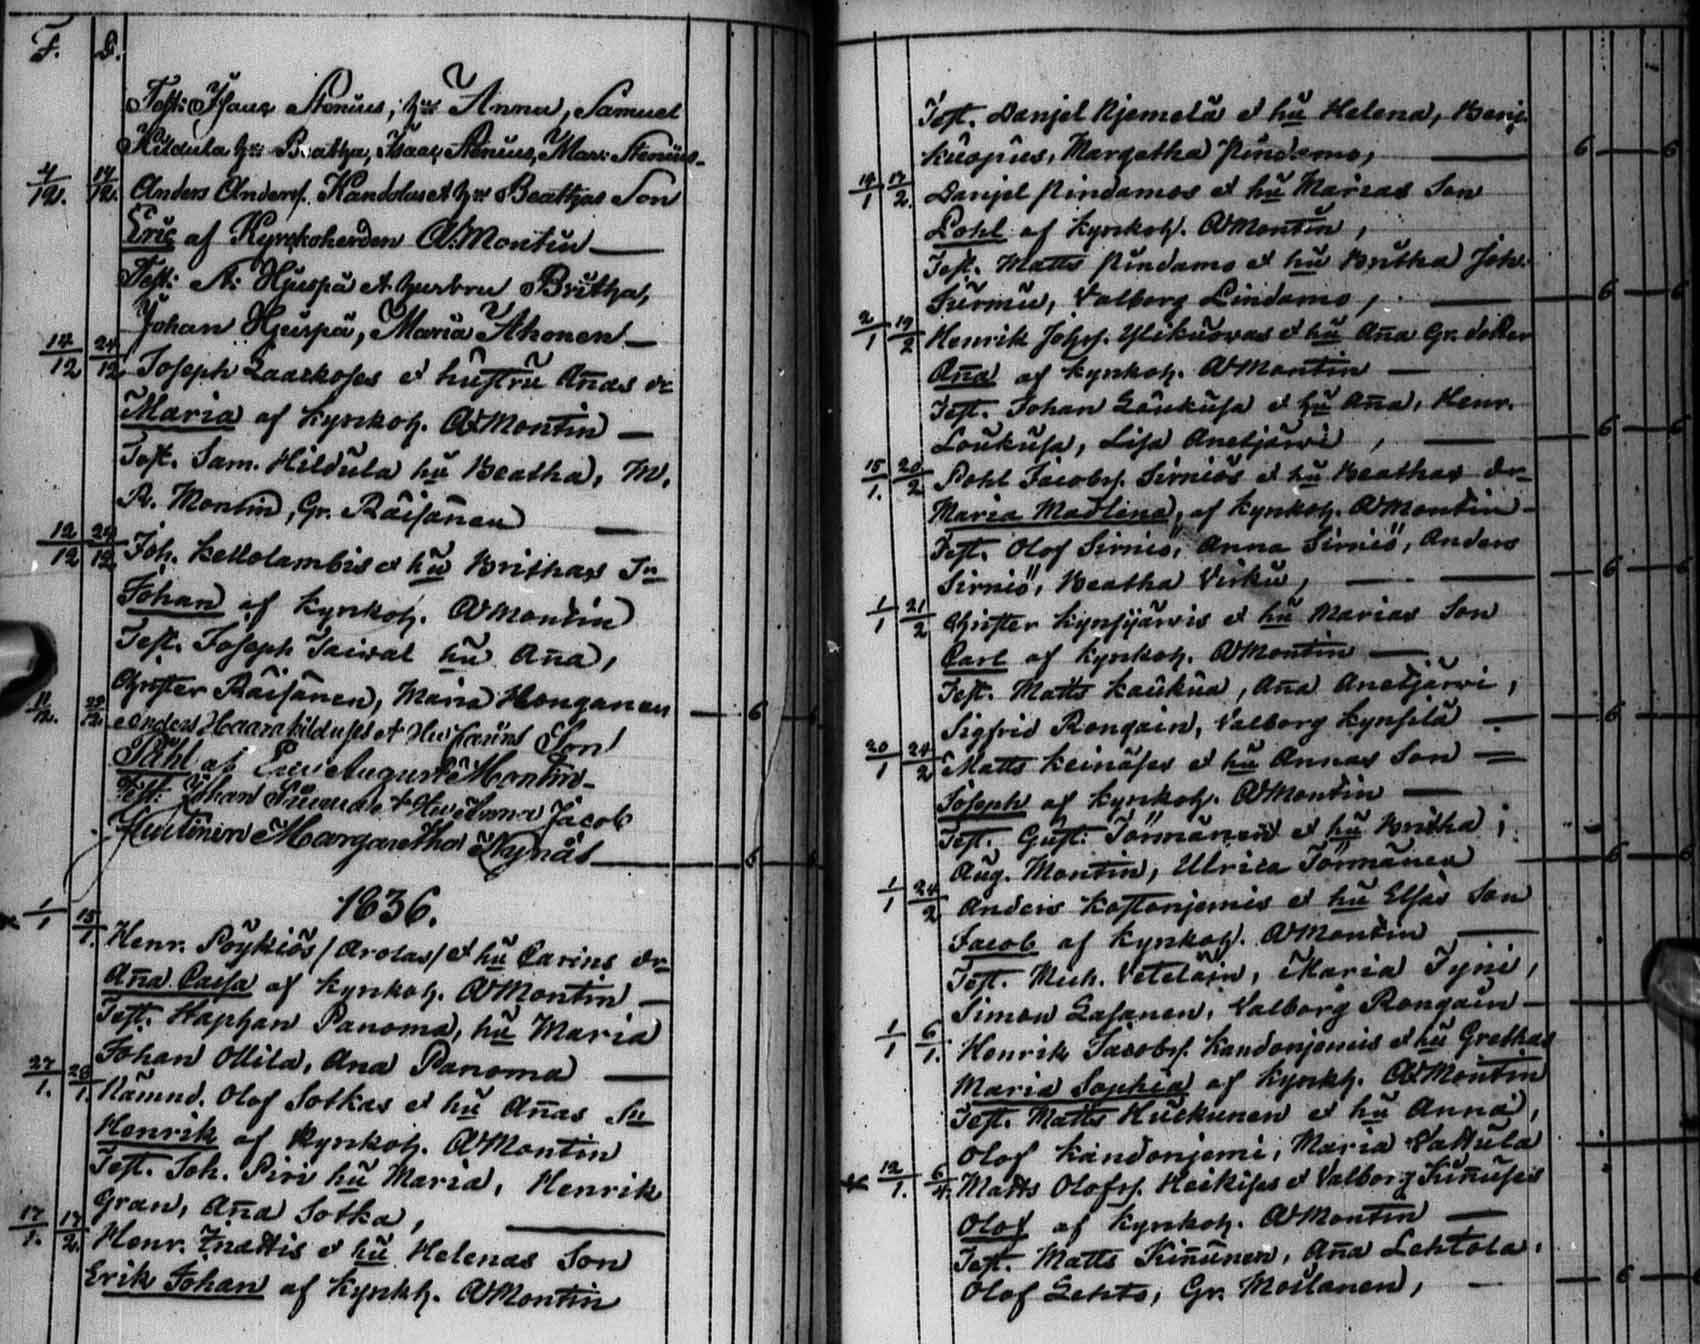 F. D.
Test: Isaac Stenius, hu Anna, Samuel
Hildula hu Beatha, Isaac Stenius, Mar: Stenius
4/12. 17/12. Anders Anders. Kandolas et hu Beathas Son
Eric af Kyrckoherden A. Montin
Test: A: Hjuspä et hustru Britha,
Johan Hjuspä, Maria Ahonen
14/12 24/12 Joseph Laackoses et hustru Añas dr
Maria af Kyrkoh. A Montin
Test. Sam. Hildula hu Beatha, M.
R. Montin, Gr. Räisänen
12/12 29/12 Joh. Kellolambis et hu Brithas Sn
Johan af Kyrkoh. A Montin
Test. Joseph Taival hu Aña,
Christer Räisänen, Maria Honganen 6
Anders Haarahilduses et Hu Carins Son
Påhl af August Montin
Test: Johan et Hu Anna Jacob
Huttinen Margaretha Näynäs 6
1836.
1/1 15/1. Henr. Pöykiös /Arolas/ et hu Carins dr
Aña Caisa af Kyrkoh. A Montin
Test. Staphan Panoma, hu Maria
Johan Ollila, Ana Panoma
27/1. 28/1. Nämnd. Olof Sotkas et hu Añas Sn
Henrik af Kyrkoh. A Montin
Test. Joh. Piri hu Maria, Henrik
Gran, Aña Sotka,
17/1. 17/2. Henr. Knättis et hu Helenas Son
Erik Johan af Kyrkh. A Montin
Test. Danjel Njemelä et hu Helena, Benj.
Kuopus, Margetha Pindamo, 6 6
14/1 17/2. Danjel Pindamos et hu Marias Son
Pohl af Kyrkoh. A Montin,
Test. Matts Pindamo et hu Britha Joh.
Surmu, Valborg Lindamo, 6 6
2/1 19/2 Henrik Johs. Ylikuovas et hu Aña Gr. dotter
Aña af Kyrkoh. A Montin
Test. Johan Loukusa et hu Aña, Henr.
Loukusa, Lisa Anetjärvi, 6 6
15/1. 20/2 Pohl Jacobs. Sirniös et hu Beathas dr
Maria Madlena, af Kyrkoh. A Montin
Test. Olof Sirniö, Anna Sirniö, Anders
Sirniö, Beatha Virku, 6 6
1/1 21/2 Christer Kynsijärvis et hu Marias Son
Carl af Kyrkoh. A Montin
Test. Matts Kaukua, Aña Anetjärvi,
Sigfrid Rongain, Valborg Kynsilä 6
20/1 24/2 Matts Keinäses et hu Annas Son
Joseph af Kyrkoh. A Montin
Test. Gust. Törmänen et hu Britha,
Aug. Montin, Ulrica Törmänen 6 6
1/1 24/2 Anders Kostonjemis et hu Elsas Son
Jacob af Kyrkoh. A Montin
Test. Mich. Vetelain, Maria Tyni,
Simon Lasanen, Valborg Rongain
1/1 6/1. Henrik Jacobs. Kandonjemis et hu Grethas
Maria Sophia af Kyrkh. A Montin
Test. Matts Huckunen et hu Anna,
Olof Kandonjemi, Maria Vattula
12/1. 6/4. Matts Olofs. Heikises et Valborg Kiñuses
Olof af Kyrkoh. A Montin
Test. Matts Kiñunen, Aña Lehtola,
Olof Lehto, Gr. Moilanen, 6